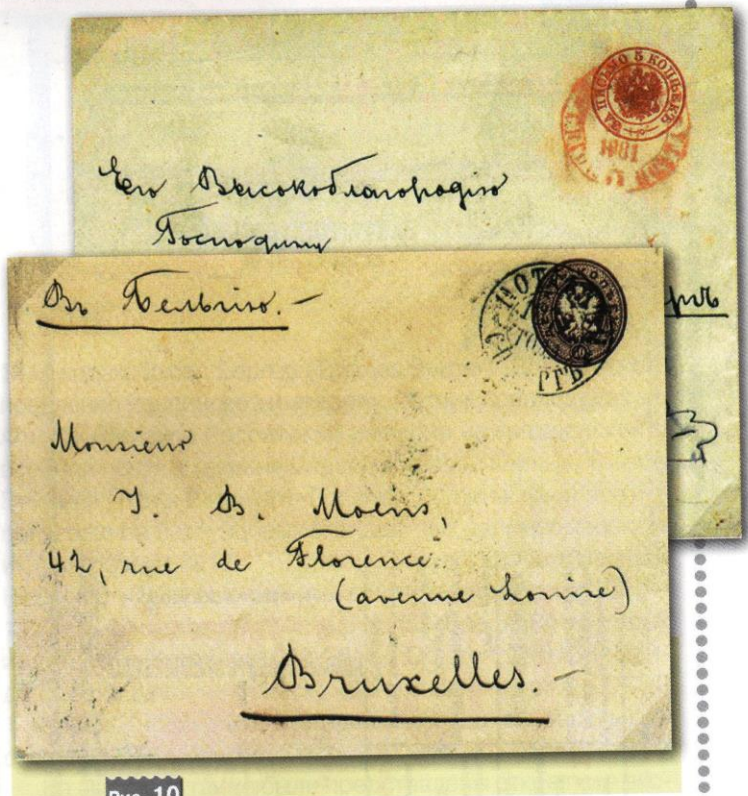 ЗА ПИСЬМО 5 КОПѢЕКЪ
1881
Его Высокоблагородію
Господину
Въ Бельгію.—
Monsieur
J. B. Moens,
42, rue de Florence
(avenue Louise)
Bruxelles.—
Рис. 10